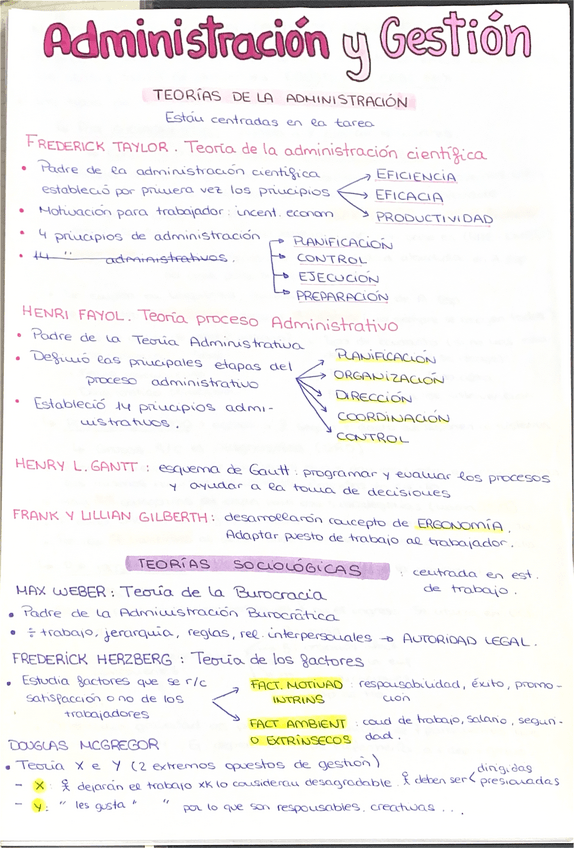 Administración y Gestión
TEORÍAS DE LA ADMINISTRACIÓN
Están centradas en la tarea
FREDERICK TAYLOR. Teoría de la administración científica
• Padre de la administración científica
estableció por primera vez los principios
EFICIENCIA
EFICACIA
PRODUCTIVIDAD
• Motivación para trabajador: incent. econom
• 4 principios de administración
PLANIFICACIÓN
CONTROL
EJECUCIÓN
PREPARACIÓN
• 14 " administrativos.
HENRI FAYOL. Teoría proceso Administrativo
• Padre de la Teoría Administrativa
• Definió las principales etapas del
proceso administrativo
PLANIFICACIÓN
ORGANIZACIÓN
DIRECCIÓN
COORDINACIÓN
CONTROL
• Estableció 14 principios admi-
nistrativos.
HENRY L. GANTT: esquema de Gantt: programar y evaluar los procesos
y ayudar a la toma de decisiones
FRANK Y LILLIAN GILBERTH: desarrollarón concepto de ERGONOMÍA.
Adaptar puesto de trabajo al trabajador.
TEORÍAS SOCIOLÓGICAS : centrada en est.
de trabajo.
MAX WEBER: Teoría de la Burocracia
• Padre de la Administración Burocrática
• ÷ trabajo, jerarquía, reglas, rel. interpersonales → AUTORIDAD LEGAL.
FREDERICK HERZBERG: Teoría de los factores
• Estudia factores que se r/c
satisfacción o no de los
trabajadores
FACT. MOTIVAD : responsabilidad, éxito, promo-
INTRINS ción
FACT AMBIENT : cond de trabajo, salario, seguri-
O EXTRÍNSECOS dad.
DOUGLAS MCGREGOR
• Teoría X e Y (2 extremos opuestos de gestión)
- X: dejarán el trabajo xk lo consideran desagradable. deben ser dirigidas
presionadas
- Y: " les gusta " " por lo que son responsables, creativas ...